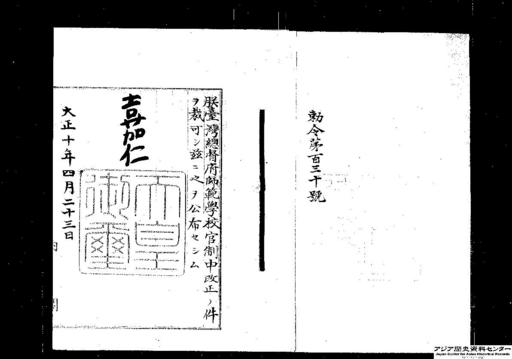 勅令第百三十號
朕臺灣總督府師範學校官制中改正ノ件
ヲ裁可シ玆ニ之ヲ公布セシム
嘉仁
天皇
御璽
大正十年四月二十三日
アジア歴史資料センター
Japan Center for Asian Historical Records